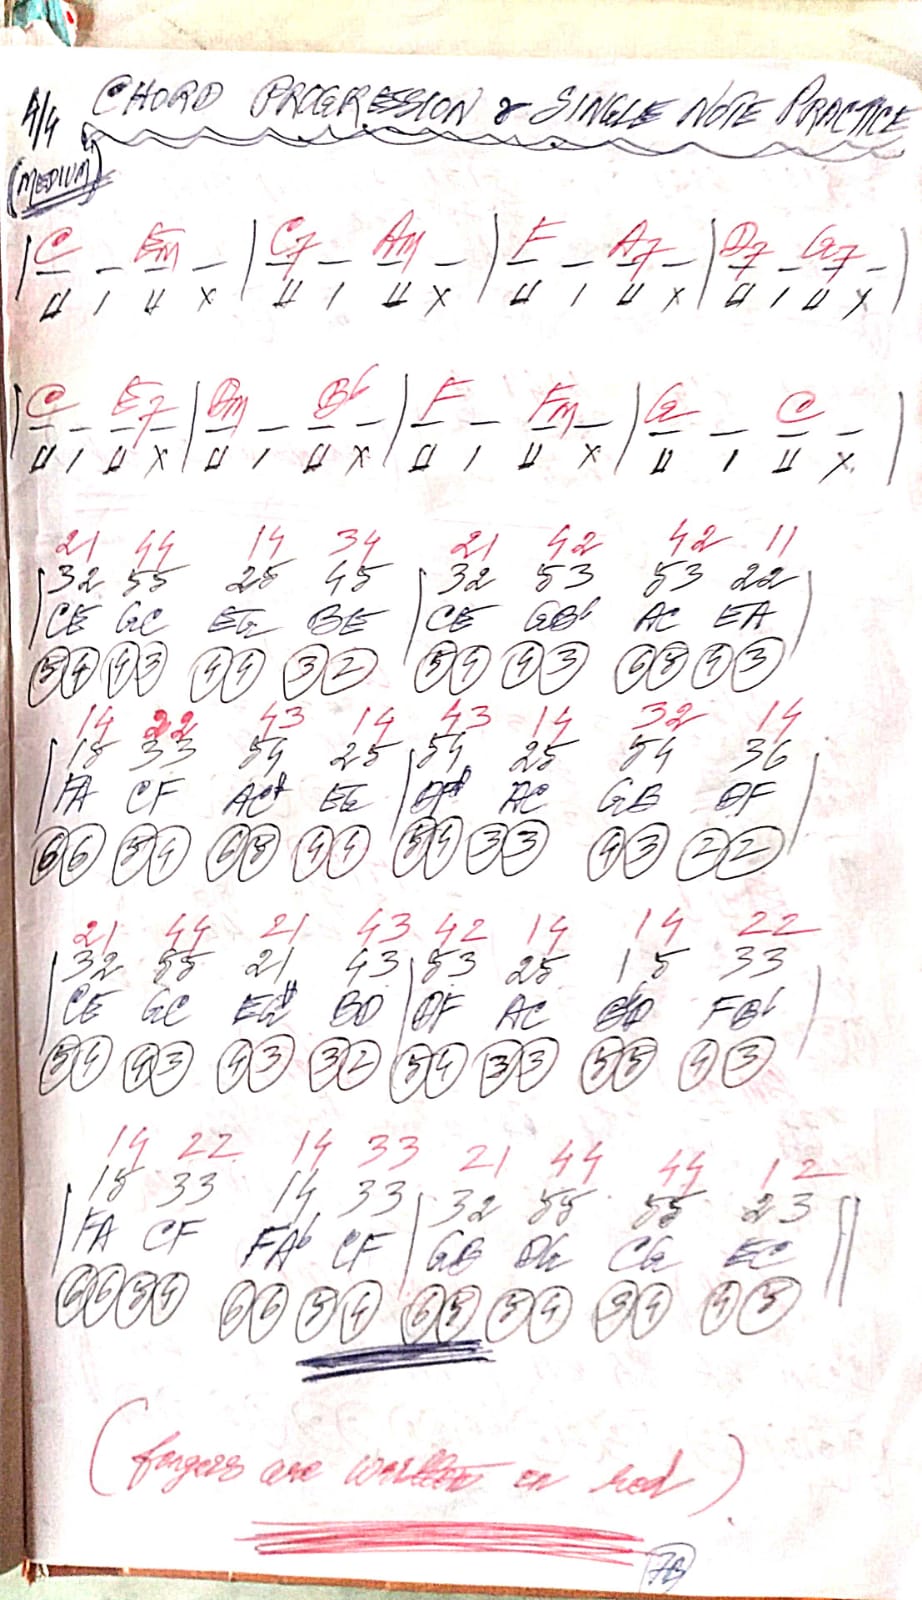 4/4 CHORD PROGRESSION & SINGLE NOTE PRACTICE
(MEDIUM)
| C - Em - | C7 - Am - | F - A7 - | D7 - G7 - |
u / u x u / u x u / u x u / u x
| C - E7 - | Dm - Bb - | F - Fm - | G - C - |
u / u x u / u x u / u x u / u x
21 44 14 34 21 42 42 11
| 32 55 25 45 | 32 53 53 22 |
CE GC EG BE CE GBb AC EA
54 43 44 32 54 43 65 43
14 22 43 14 43 14 32 14
| 15 33 54 25 | 54 25 54 36 |
FA CF AC# EG DF# AC GB DF
66 54 65 44 54 33 43 22
21 44 21 43 42 14 14 22
| 32 55 21 43 | 53 25 15 33 |
CE GC EG# BD DF AC BbD FBb
54 43 43 32 54 33 55 43
14 22 14 33 21 44 44 12
| 15 33 14 33 | 32 55 55 23 ||
FA CF FAb CF GB DG CG EC
66 54 66 54 65 54 54 45
(fingers are written in red)